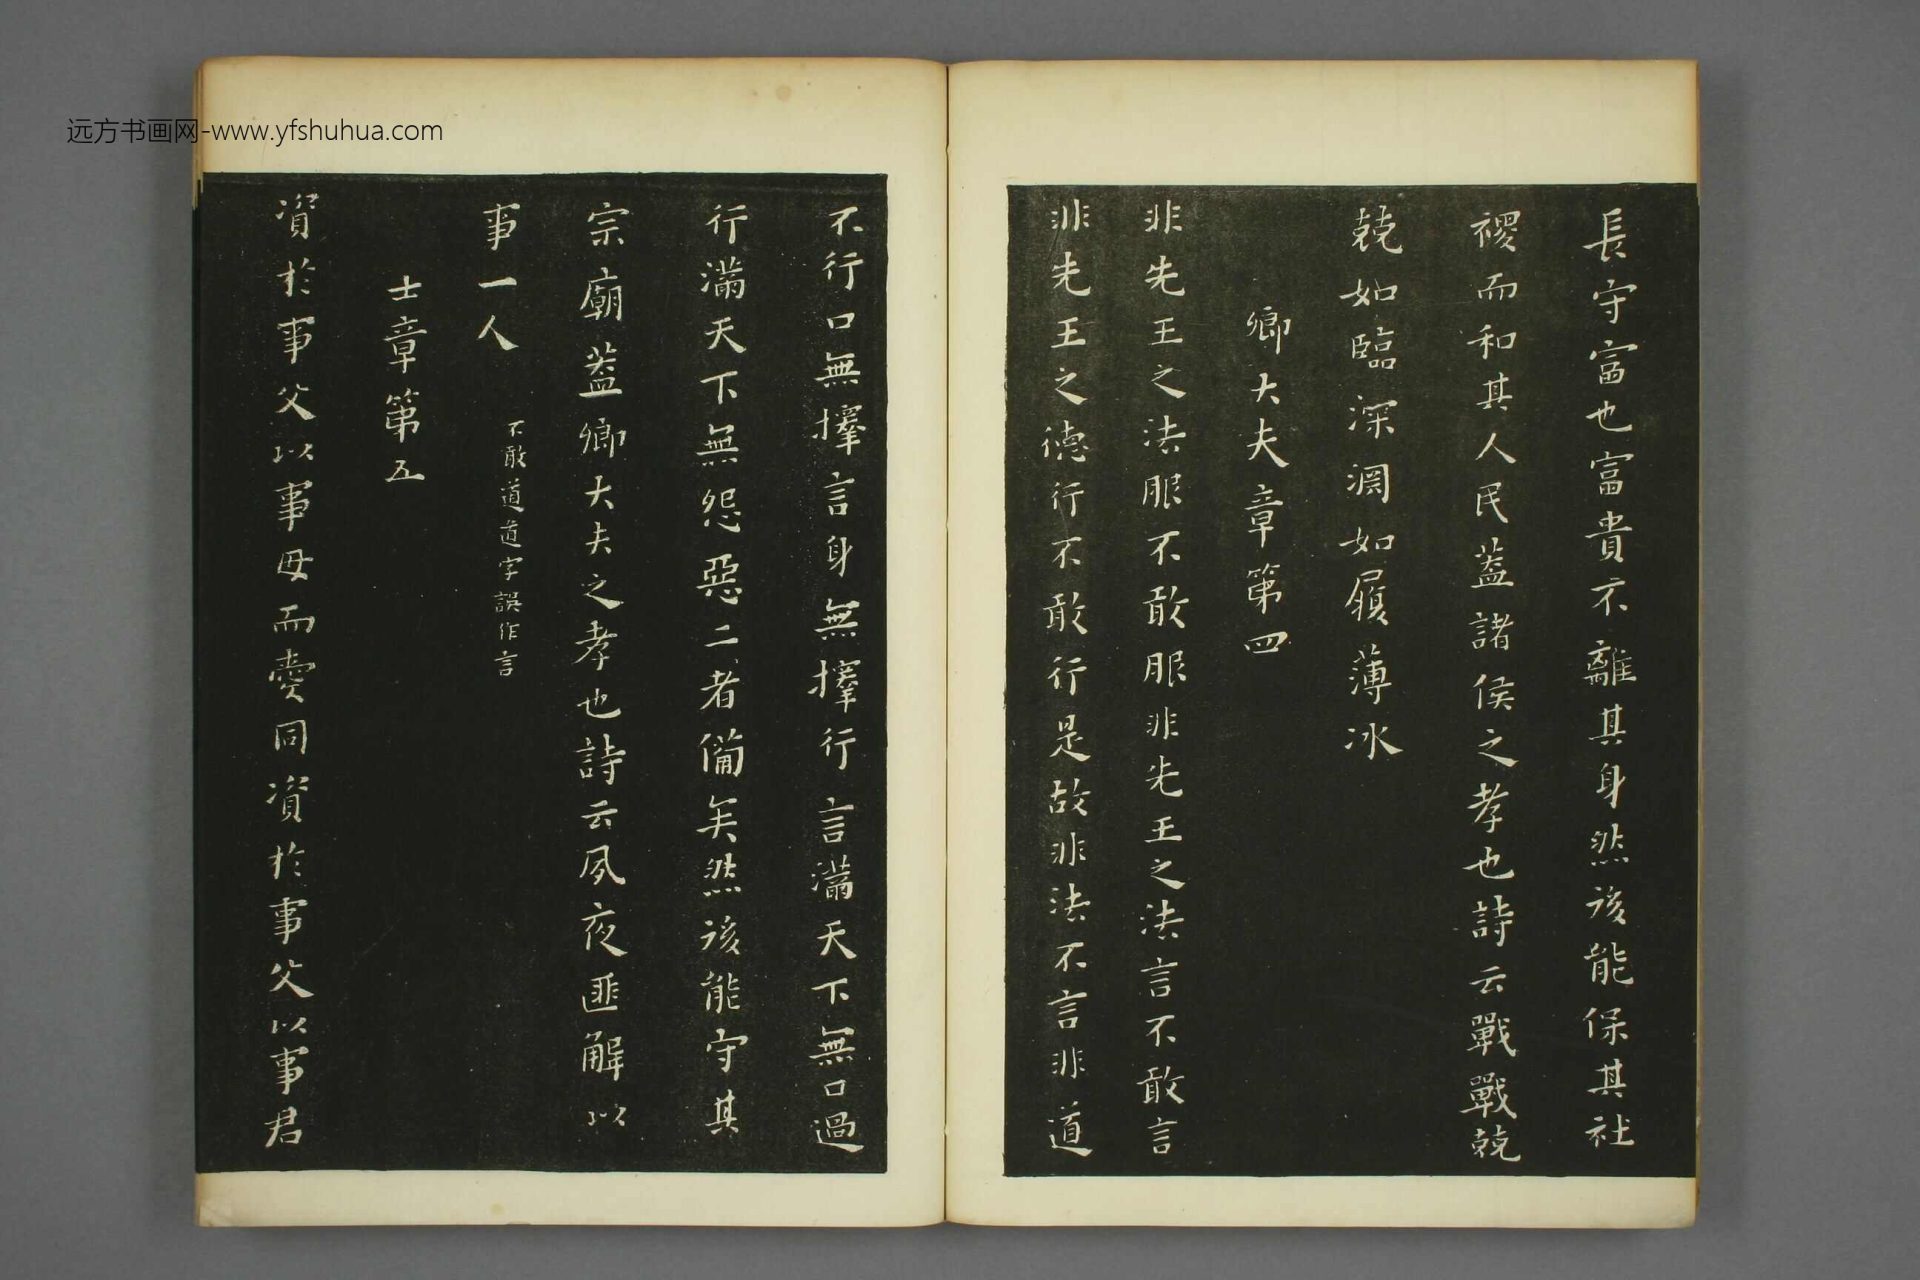 远方书画网-www.yfshuhua.com
長守富也富貴不離其身然後能保其社
稷而和其人民蓋諸侯之孝也詩云戰戰兢
兢如臨深淵如履薄冰
卿大夫章第四
非先王之法服不敢服非先王之法言不敢言
非先王之德行不敢行是故非法不言非道
不行口無擇言身無擇行言滿天下無口過
行滿天下無怨惡二者備矣然後能守其
宗廟蓋卿大夫之孝也詩云夙夜匪解以
事一人
不敢道道字誤作言
士章第五
資於事父以事母而愛同資於事父以事君